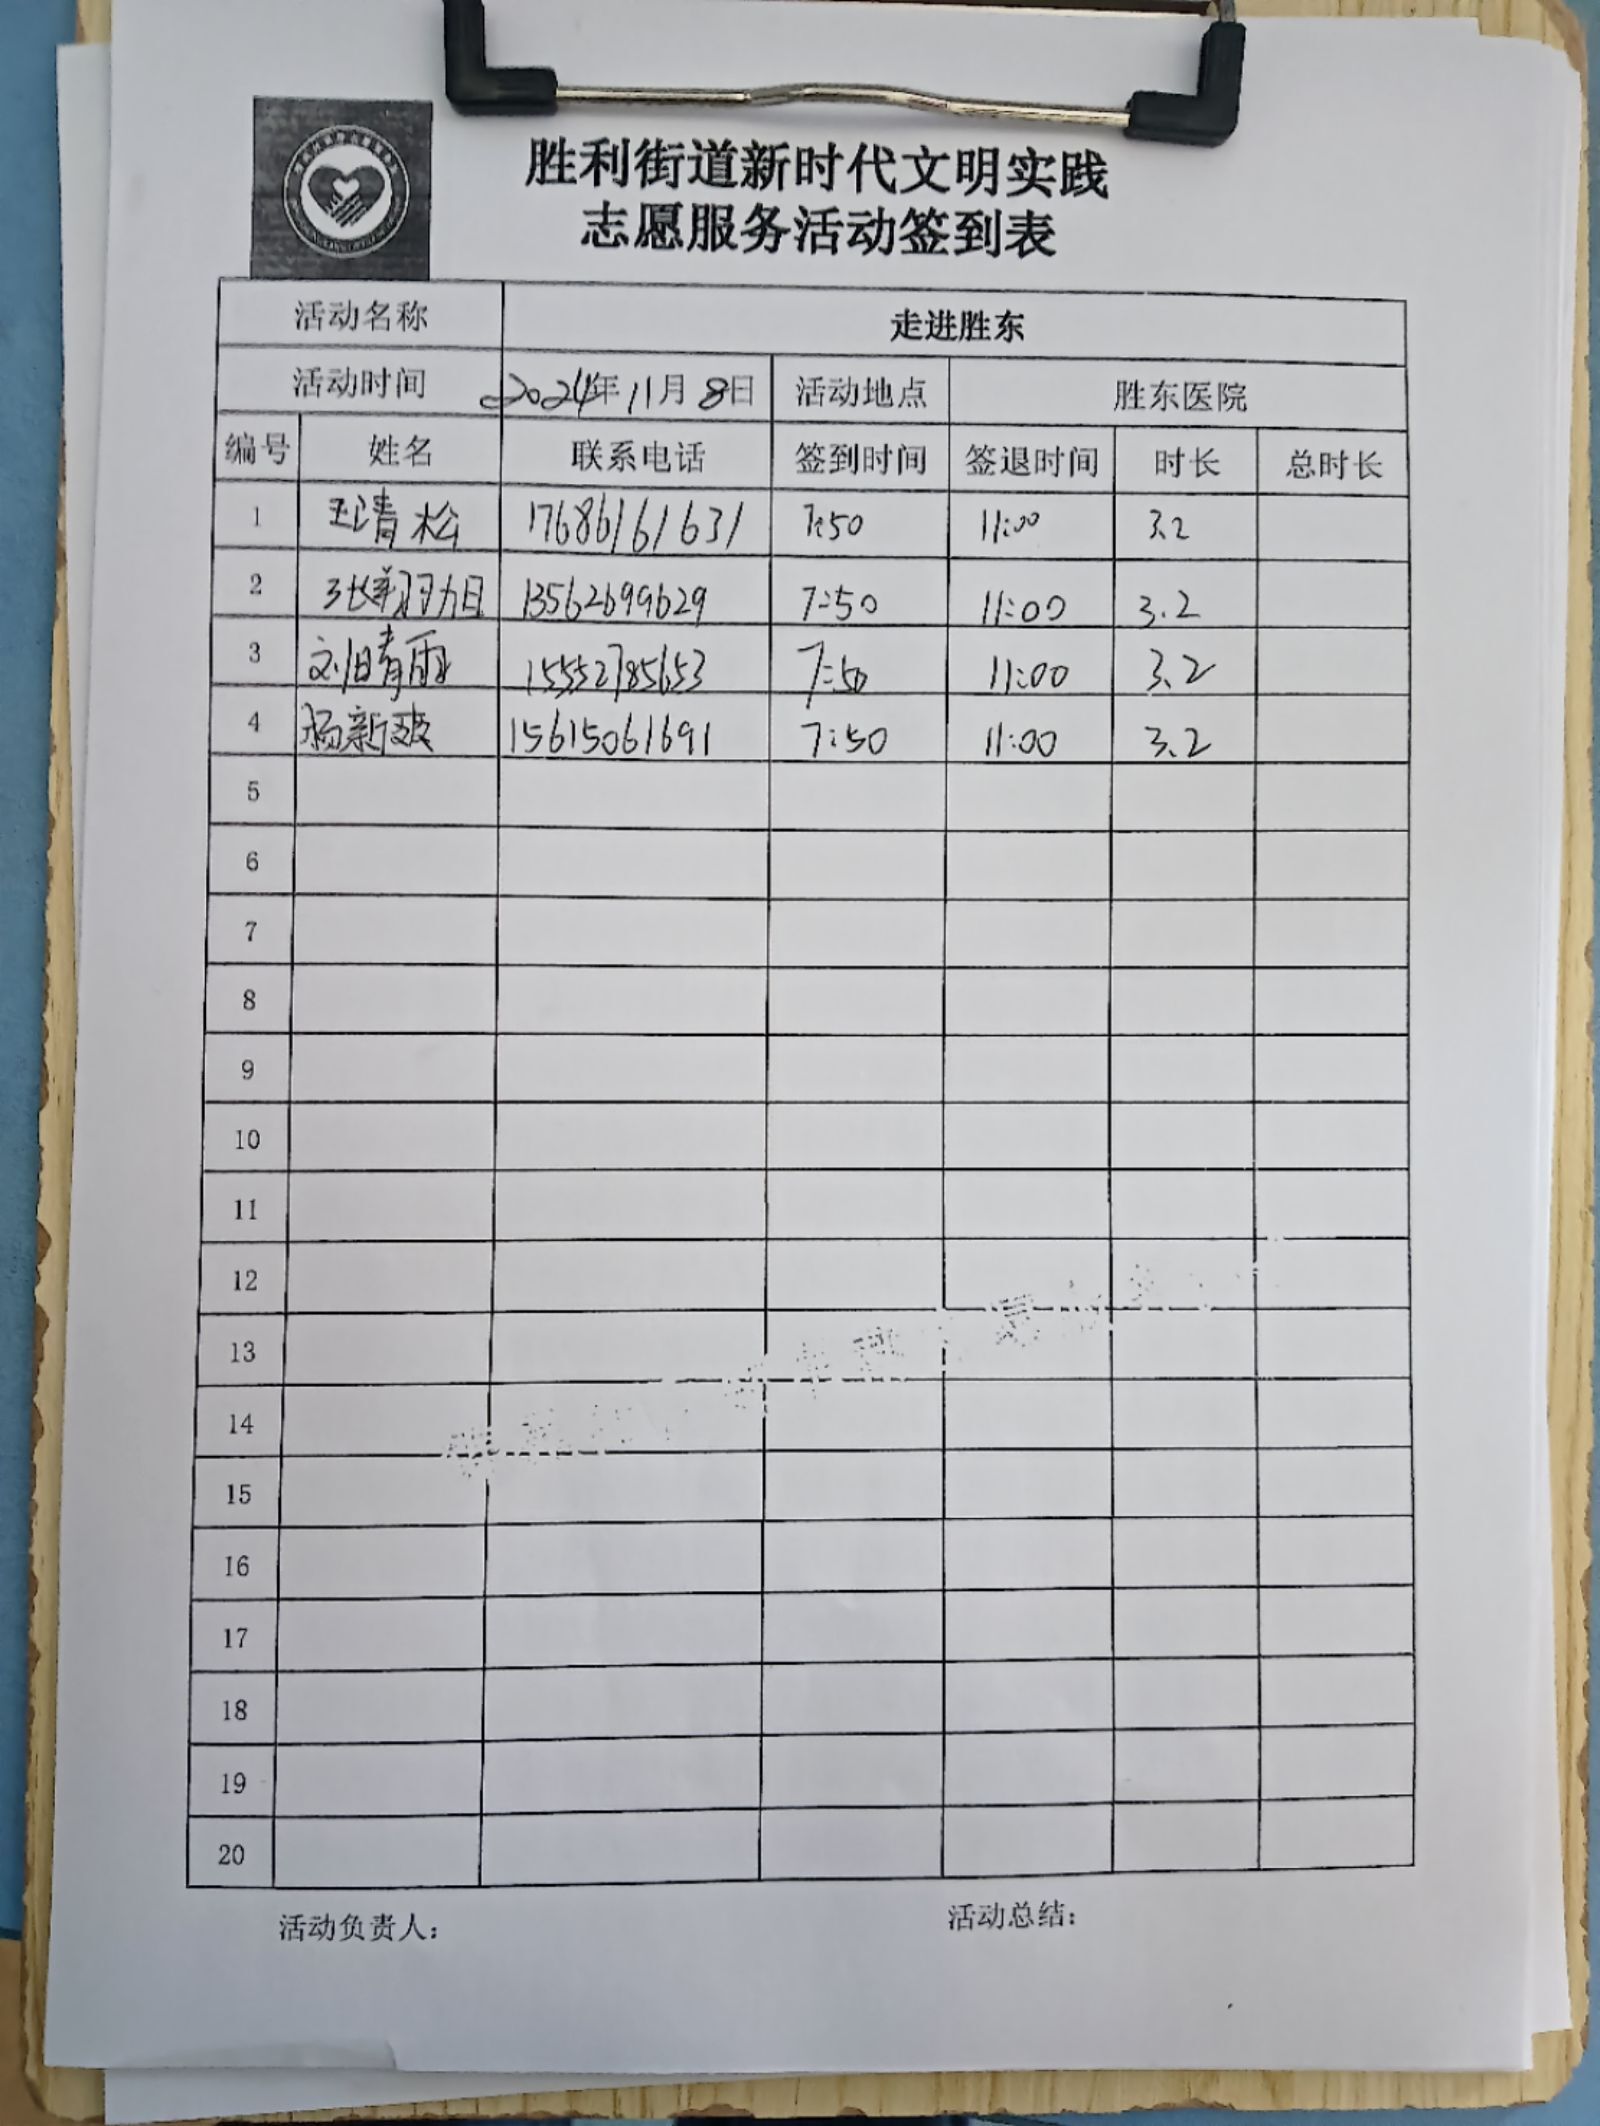 胜利街道新时代文明实践
志愿服务活动签到表
活动名称 走进胜东
活动时间 2024年11月8日 活动地点 胜东医院
编号 姓名 联系电话 签到时间 签退时间 时长 总时长
1 王清松 17686161631 7:50 11:00 3.2
2 13562699629 7:50 11:00 3.2
3 刘晴雨 15552785653 7:50 11:00 3.2
4 杨新爽 15615061691 7:50 11:00 3.2
5
6
7
8
9
10
11
12
13
14
15
16
17
18
19
20
活动负责人: 活动总结: